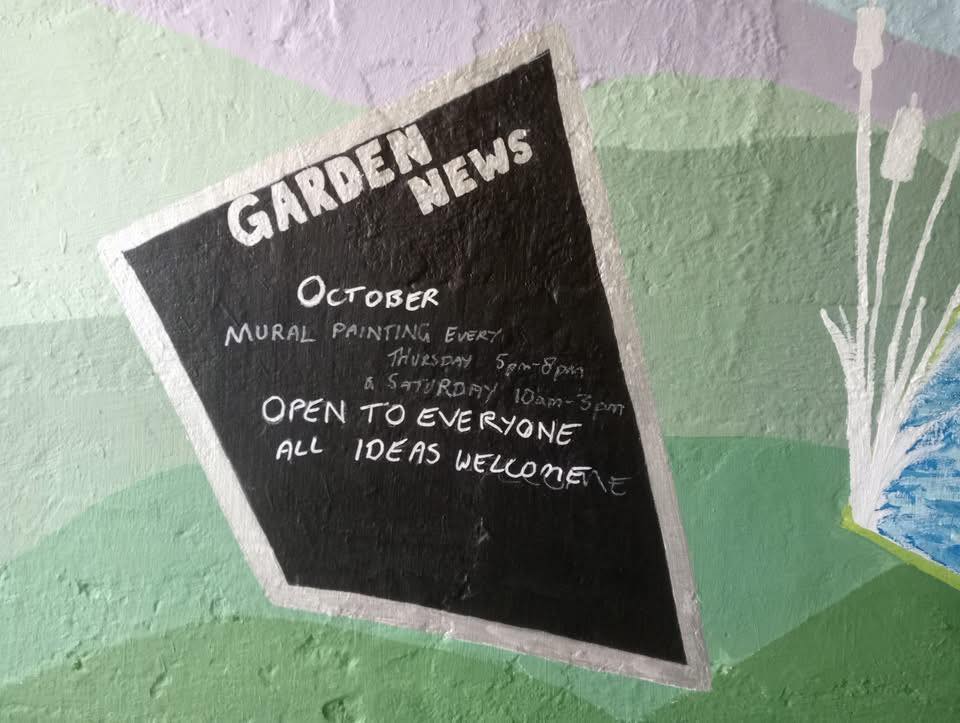 GARDEN
NEWS
OCTOBER
MURAL PAINTING EVERY
THURSDAY 5pm-8pm
& SATURDAY 10am-3pm
OPEN TO EVERYONE
ALL IDEAS WELCOME